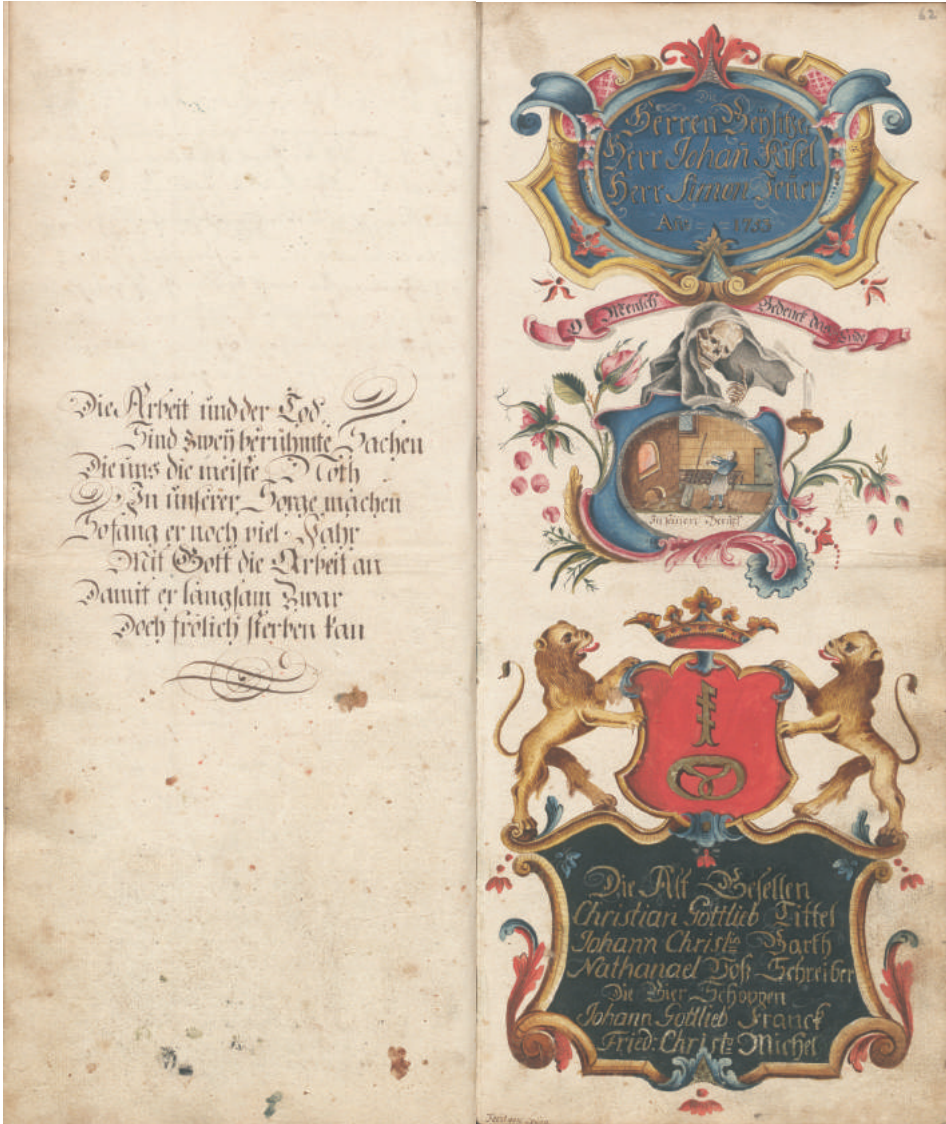 Die Arbeit und der Tod
Sind zweÿ berühmte Sachen
Die uns die meiste Noth
In unserer Sorge machen
So fang er noch viel Jahr
Mit Gott die Arbeit an
Damit er langsam Zwar
Doch frölich sterben kan
62
Die
Herren Beÿsitzer
Herr Johan Kisel
Herr Simon
Ao 1733
O Mensch Gedenck das Ende
In seinem Beruf
Die Alt Gesellen
Christian Gottlieb Tittel
Johann Christn Barth
Nathanael Voß Schreiber
Die Bier Schoppen
Johann Gottlieb Franck
Fried: Christn Michel